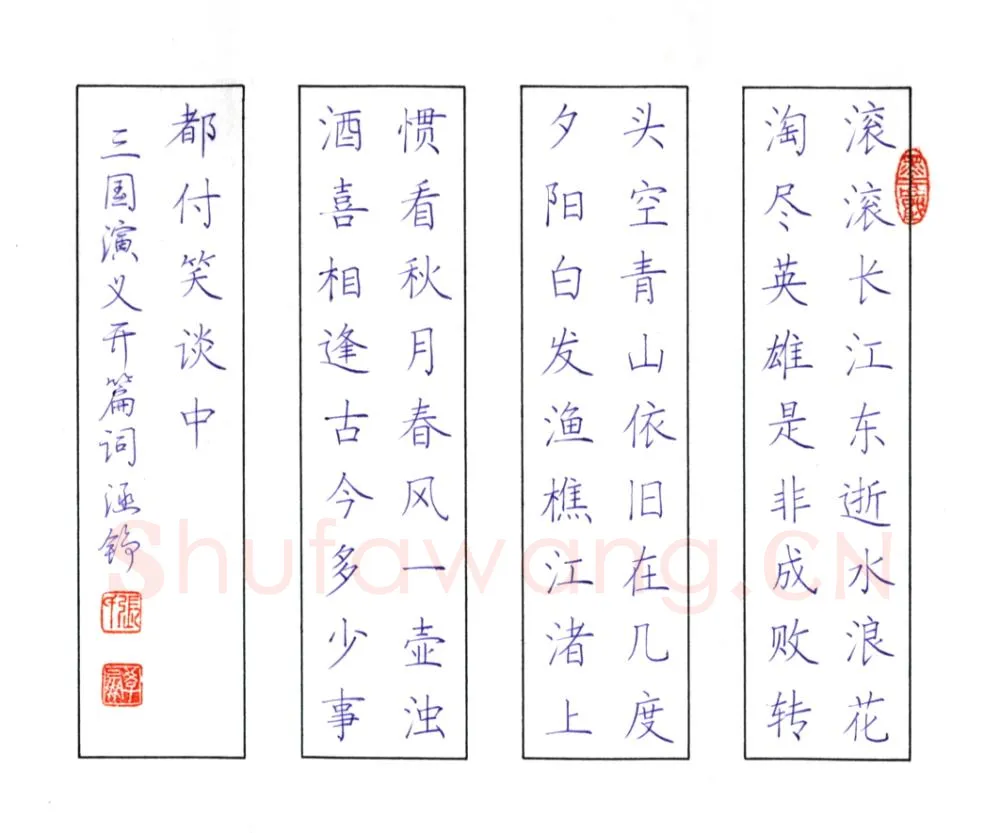 滚滚长江东逝水浪花
淘尽英雄是非成败转
头空青山依旧在几度
夕阳白发渔樵江渚上
惯看秋月春风一壶浊
酒喜相逢古今多少事
都付笑谈中
三国演义开篇词涵
Shufawang.CN